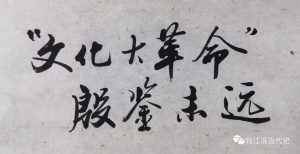 “文化大革命”
殷鉴未远
钱江说当代史